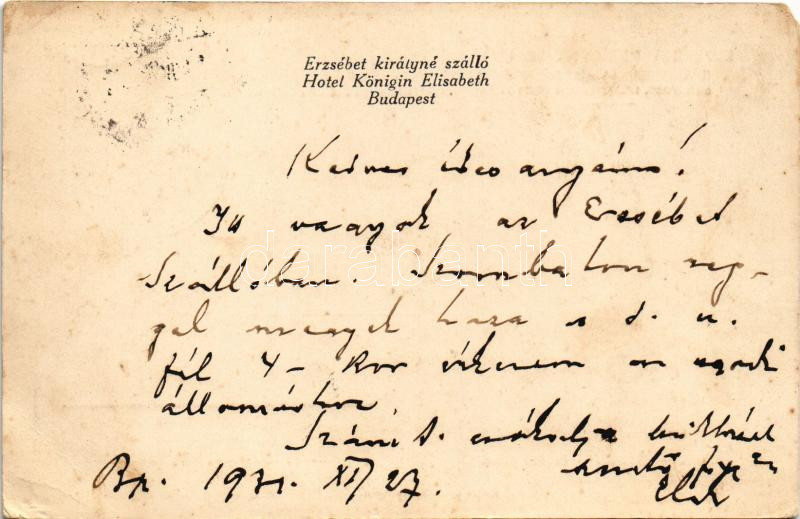 Erzsébet királyné szálló
Hotel Königin Elisabeth
Budapest
Kedves édes anyám!
Itt vagyok az Erzsébet
Szállóban. Szombaton reg-
gel megyek haza s d. u.
fél 4-kor érkezem az
állomáshoz.
csókolja
Bp. 1931. XI/27.
darabanth